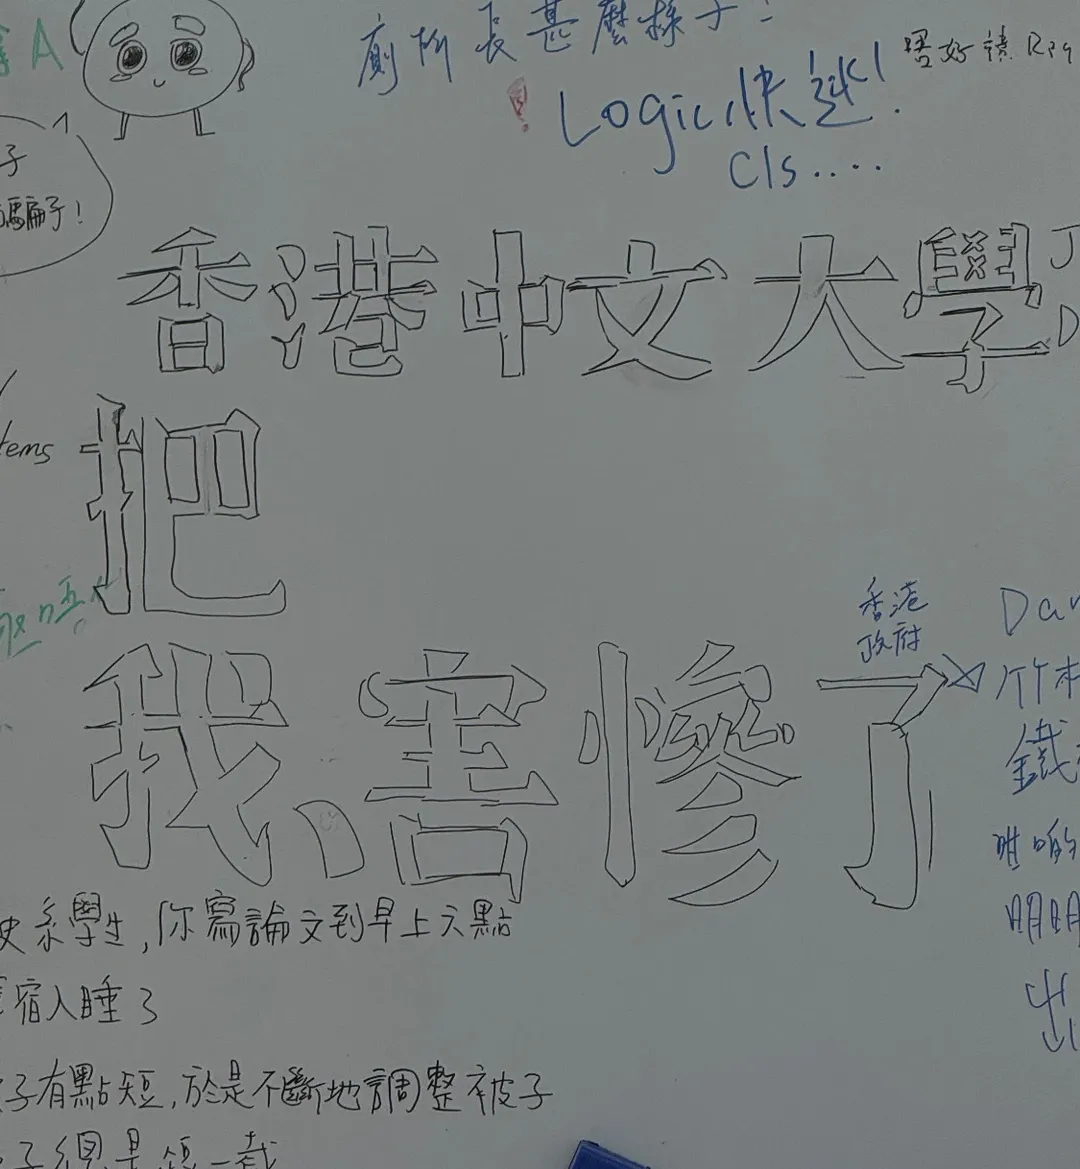 A
廁所長甚麼樣子？
唔好讀
Logic快逃！
Cls....
子
騙子！
香港中文大學
J
D
把
tems
香港
政府
我害慘了
Dar
竹
鐵
咁啲
明明
出
史系學生,你寫論文到早上六點
宿入睡了
子有點短,於是不斷地調整被子
子總是短一截